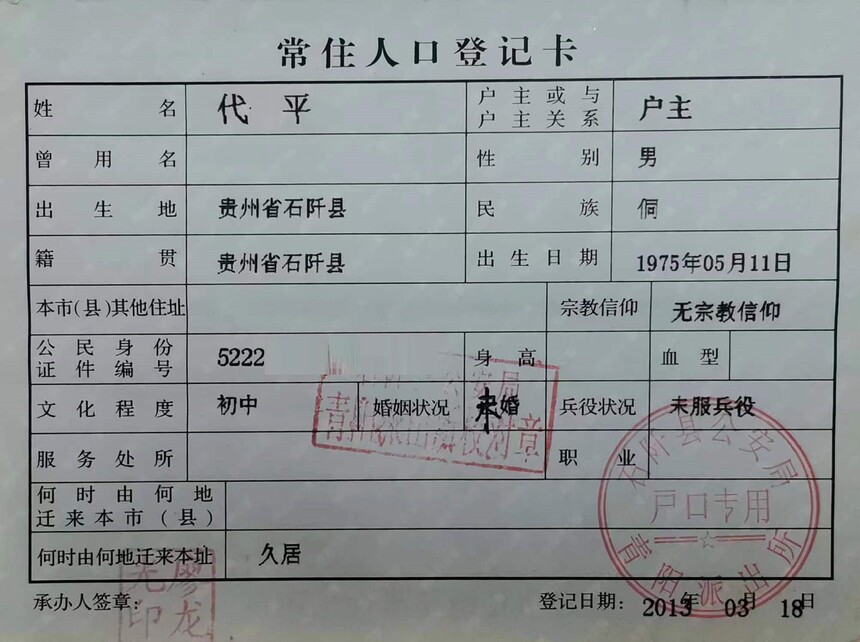 常住人口登记卡
姓名 代平 户主或与户主关系 户主
曾用名 性别 男
出生地 贵州省石阡县 民族 侗
籍贯 贵州省石阡县 出生日期 1975年05月11日
本市(县)其他住址 宗教信仰 无宗教信仰
公民身份证件编号 5222 身高 血型
文化程度 初中 婚姻状况 未婚 兵役状况 未服兵役
服务处所 职业
何时由何地迁来本市(县)
何时由何地迁来本址 久居
承办人签章: 登记日期: 2013年03月18日
石阡县公安局
户口专用
青阳派出所
廖龙
印